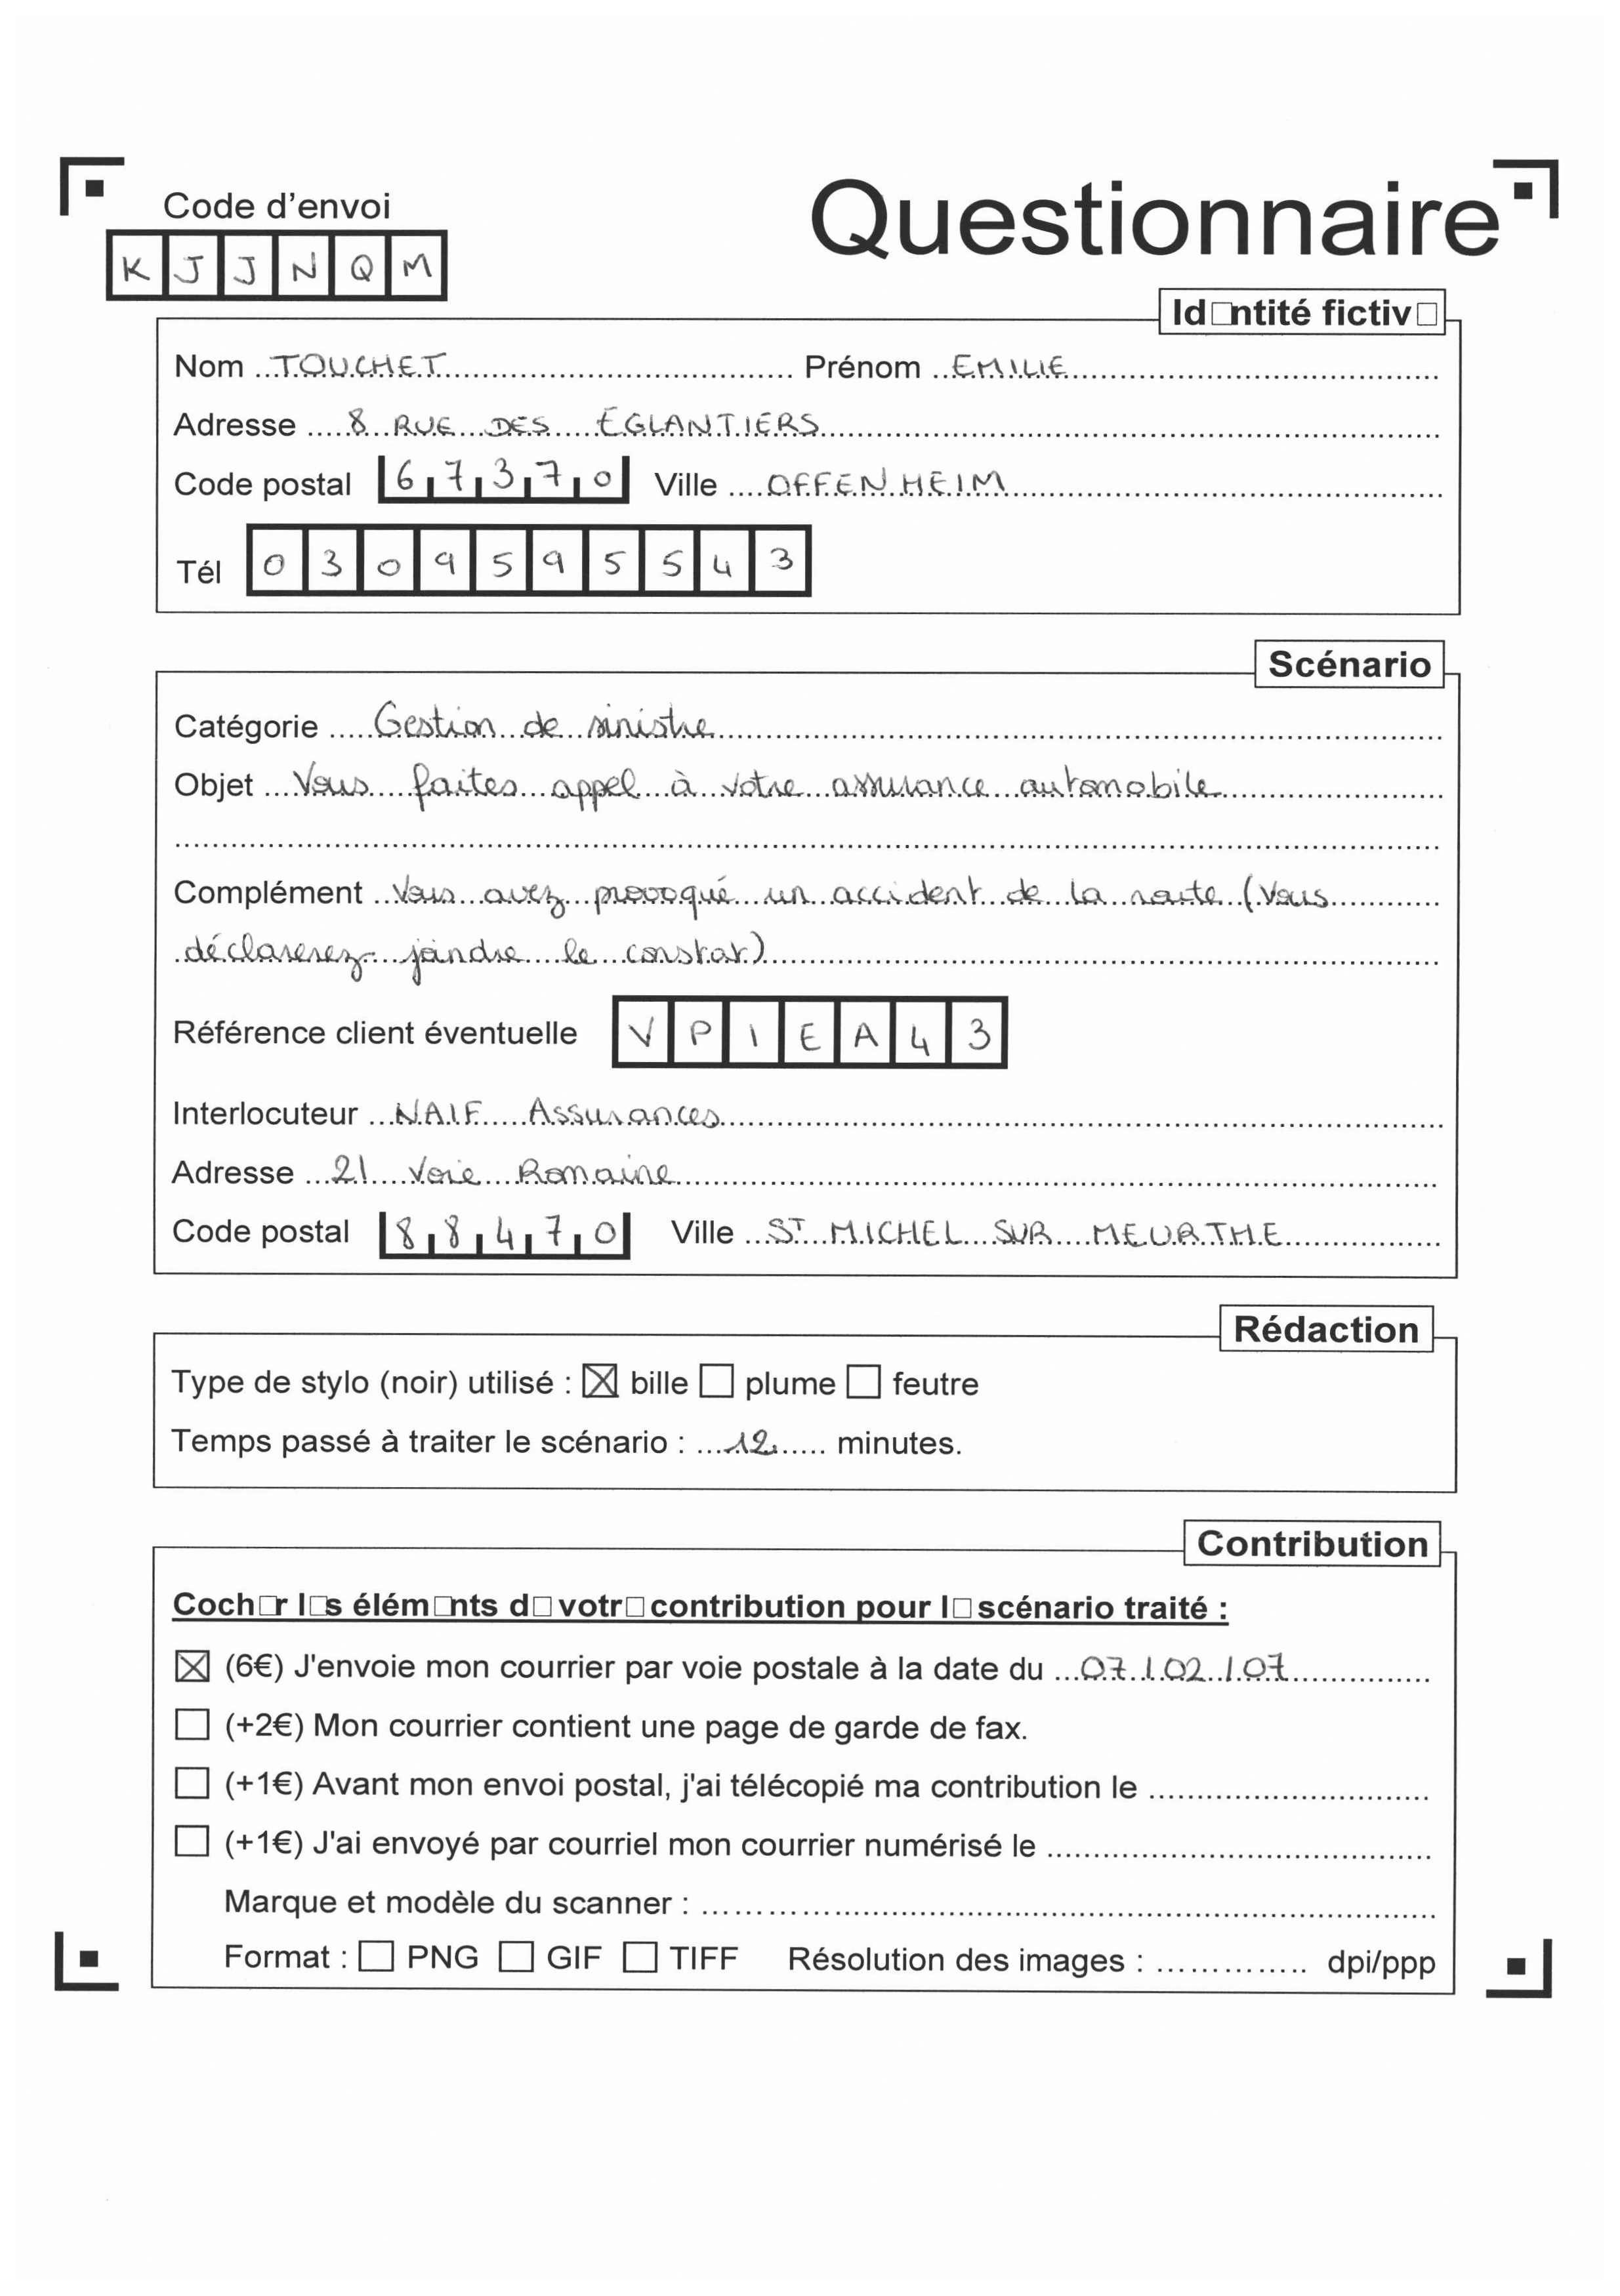 Code d'envoi
Questionnaire
K J J N Q M
Id□ntité fictiv□
Nom TOUCHET Prénom EMILIE
Adresse 8 RUE DES ÉGLANTIERS
Code postal 67370 Ville OFFENHEIM
Tél 0309595543
Scénario
Catégorie Gestion de sinistre
Objet Vous faites appel à votre assurance automobile
Complément Vous avez provoqué un accident de la route (Vous
déclarerez joindre le constat)
Référence client éventuelle VPIEA43
Interlocuteur NAIF Assurances
Adresse 21 Voie Romaine
Code postal 88470 Ville ST MICHEL SUR MEURTHE
Rédaction
Type de stylo (noir) utilisé : ☒ bille ☐ plume ☐ feutre
Temps passé à traiter le scénario : 12 minutes.
Contribution
Coch□r l□s élém□nts d□ votr□ contribution pour l□ scénario traité :
☒ (6€) J'envoie mon courrier par voie postale à la date du 07/02/07
☐ (+2€) Mon courrier contient une page de garde de fax.
☐ (+1€) Avant mon envoi postal, j'ai télécopié ma contribution le
☐ (+1€) J'ai envoyé par courriel mon courrier numérisé le
Marque et modèle du scanner :
Format : ☐ PNG ☐ GIF ☐ TIFF Résolution des images : dpi/ppp